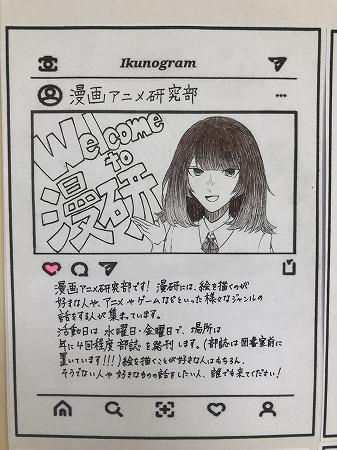 Ikunogram
漫画アニメ研究部
Welcome
to
漫研
漫画アニメ研究部です! 漫研には、絵を描くのが
好きな人や、アニメやゲームなどといった様々なジャンルの
話をする人が集まっています。
活動日は 水曜日・金曜日で、場所は
年に4回程度 部誌を発刊します。(部誌は図書室前に
置いています!!!) 絵を描くことが好きな人はもちろん、
そうでない人や好きなものの話をしたい人、誰でも来てください!